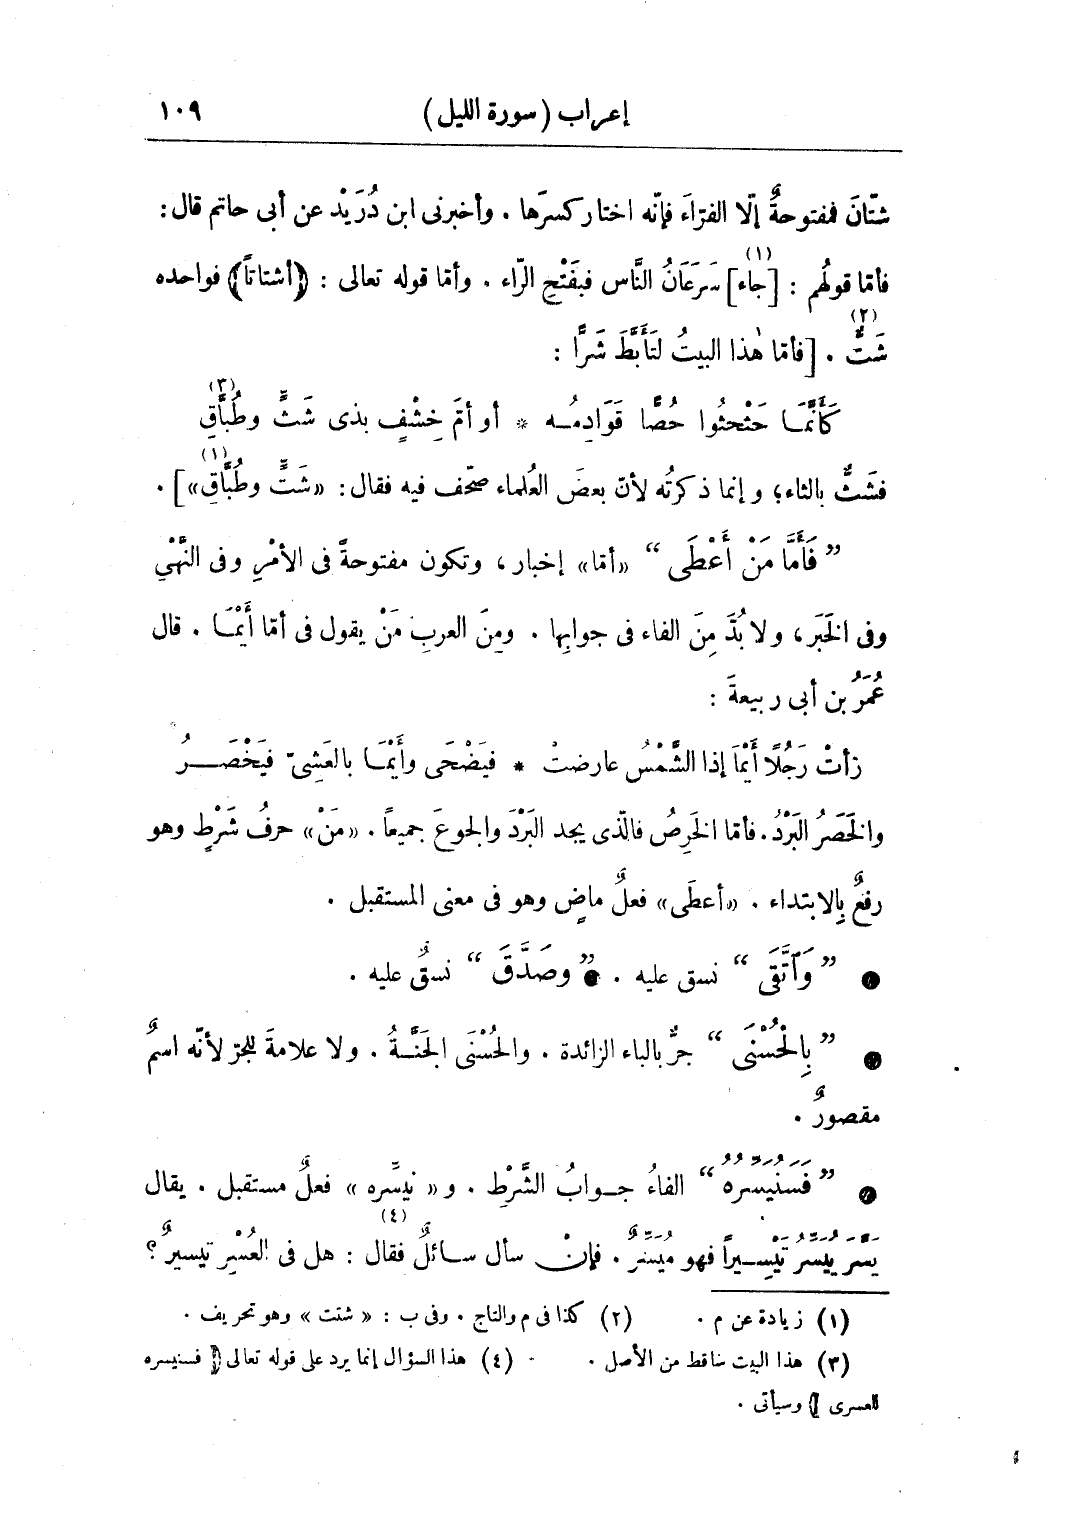 إعراب (سورة الليل) ١٠٩
شتّانَ فمفتوحةٌ إلّا الفرّاءَ فإنّه اختار كسرَها . وأخبرنى ابن دُرَيْد عن أبى حاتم قال :
فأمّا قولُهم : [جاء](١) سَرَعَانُ النَّاس فبفَتْحِ الرّاء . وأمّا قوله تعالى : ﴿أشتاتاً﴾ فواحده
شَتٌّ(٢) . [فأمّا هٰذا البيتُ لتَأَبَّطَ شَرًّا :
كَأَنَّمَا حَثْحَثُوا حُصًّا قَوَادِمُـه * أو أمَّ خِشْفٍ بذى شَثٍّ وطُبَّاقِ(٣)
فشَثٌّ بالثاء؛ وإنما ذكرتُه لأنّ بعضَ العُلماء صحّف فيه فقال : «شَتٍّ وطُبَّاقِ»(١)] .
”فَأَمَّا مَنْ أَعْطَى“ «أمّا» إخبار ، وتكون مفتوحةً فى الأمْرِ وفى النَّهْىِ
وفى الخَبَرِ ، ولا بُدَّ مِنَ الفاء فى جوابِها . ومِنَ العربِ مَنْ يقول فى أمّا أَيْمَـا . قال
عُمَرُ بن أبى ربيعةَ :
رأتْ رَجُلًا أَيْمَا إذا الشَّمْسُ عارضتْ * فيَضْحَى وأَيْمَـا بالعَشِىّ فيَخْصَـــرُ
والخَصَرُ البَرْدُ . فأمّا الخَرِصُ فالّذى يجد البَرْدَ والجوعَ جميعاً . «مَنْ» حرفُ شَرْطٍ وهو
رفعٌ بِالابتداء . «أعطَى» فعلٌ ماضٍ وهو فى معنى المستقبل .
● ”وَٱتَّقَى“ نسق عليه . ● ”وصَدَّقَ“ نسقٌ عليه .
● ”بِالْحُسْنَى“ جرٌّ بالباء الزائدة . والحُسْنَى الجَنَّــةُ . ولا علامةَ للجرّ لأنّه اسمٌ
مقصورٌ .
● ”فَسَنُيَسِّرُهُ“ الفاءُ جـوابُ الشَّرْطِ . و« نيسِّره » فعلٌ مستقبل . يقال
يَسَّرَ يُيَسِّرُ تَيْسِـيراً فهو مُيَسِّرٌ . فإنْ سأل سـائلٌ(٤) فقال : هل فى العُسْرِ تيسيرٌ ؟
(١) زيادة عن م . (٢) كذا فى م والتاج . وفى ب : « شتت » وهو تحريف .
(٣) هذا البيت ساقط من الأصل . (٤) هذا السؤال إنما يرد على قوله تعالى ﴿ فسنيسره
للعسرى ﴾ وسيأتى .